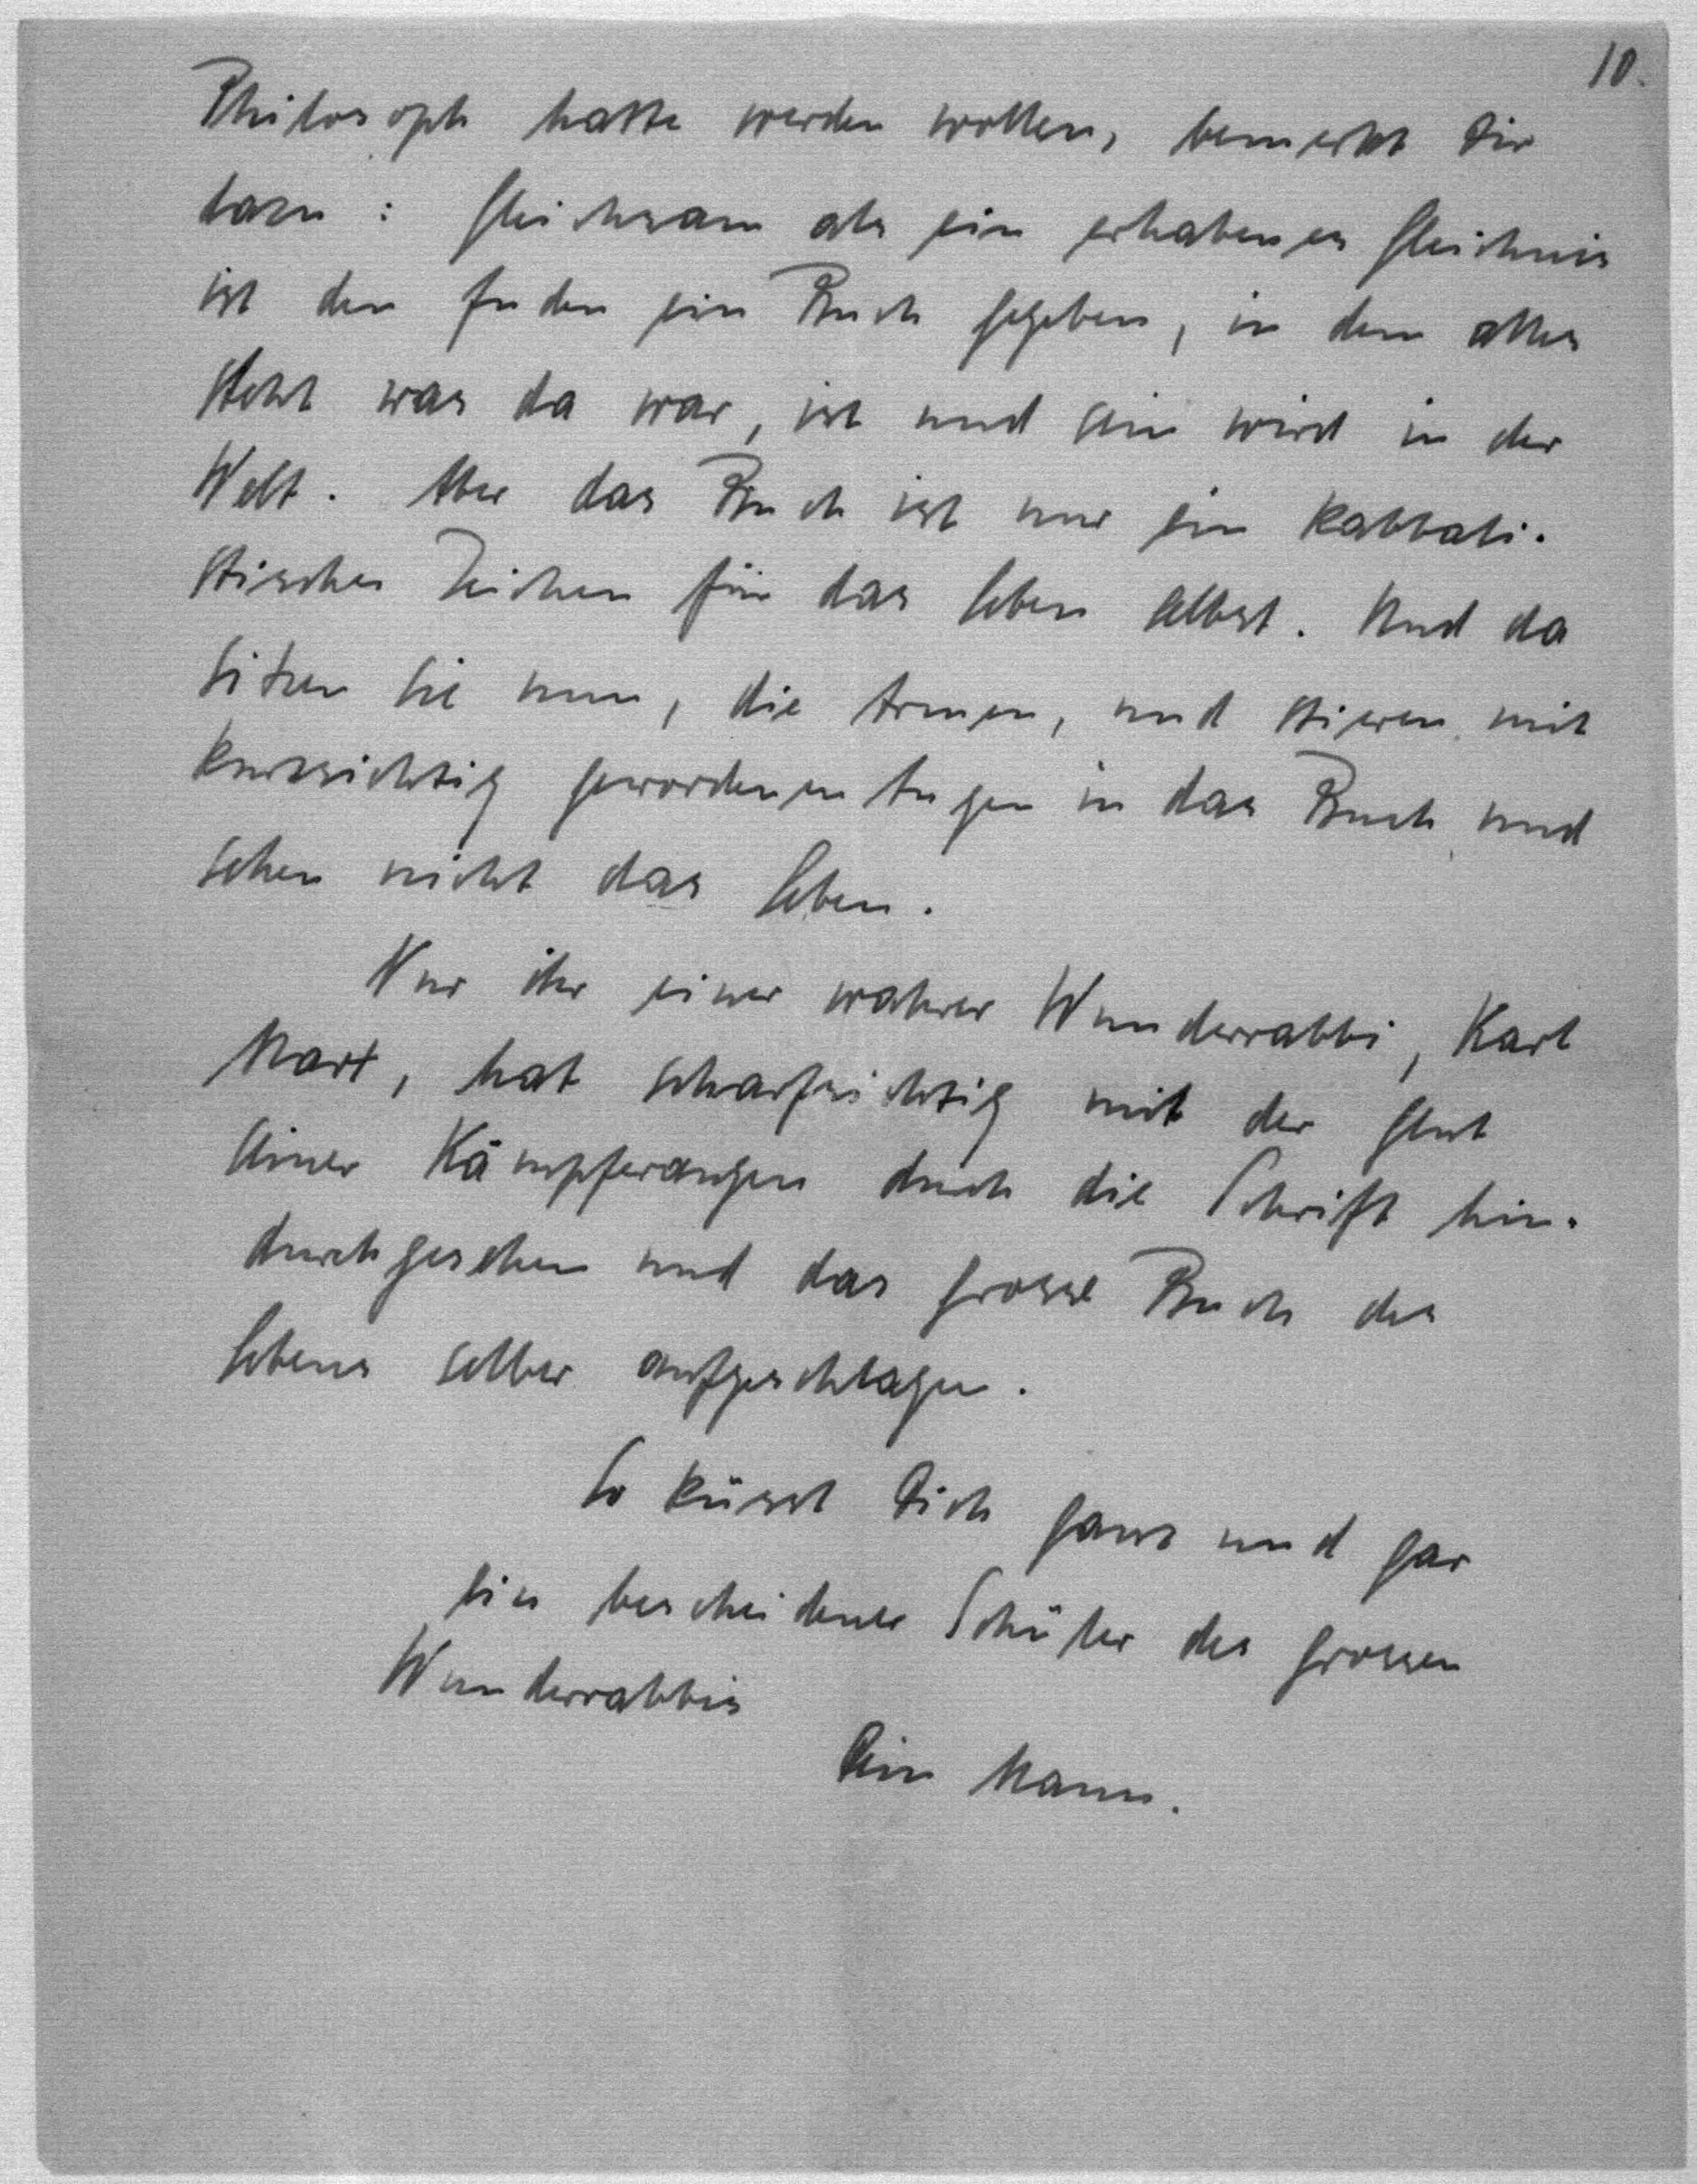 10.
Philosoph hatte werden wollen, bemerkt Dir
dazu: Gleichsam als ein erhabenes Gleichnis
ist den Juden ein Buch gegeben, in dem alles
steht was da war, ist und sein wird in der
Welt. Aber das Buch ist nur ein kabbali-
stisches Zeichen für das Leben selbst. Und da
sitzen sie nun, die Armen, und stieren mit
kurzsichtig gewordenen Augen in das Buch und
sehen nicht das Leben.
Nur ihr einer wahrer Wunderrabbi, Karl
Marx, hat scharfsichtig mit der Glut
seiner Kämpferaugen durch die Schrift hin-
durchgesehen und das grosse Buch des
Lebens selber aufgeschlagen.
So küsst Dich ganz und gar
ein bescheidener Schüler des grossen
Wunderrabbis
Dein Mann.